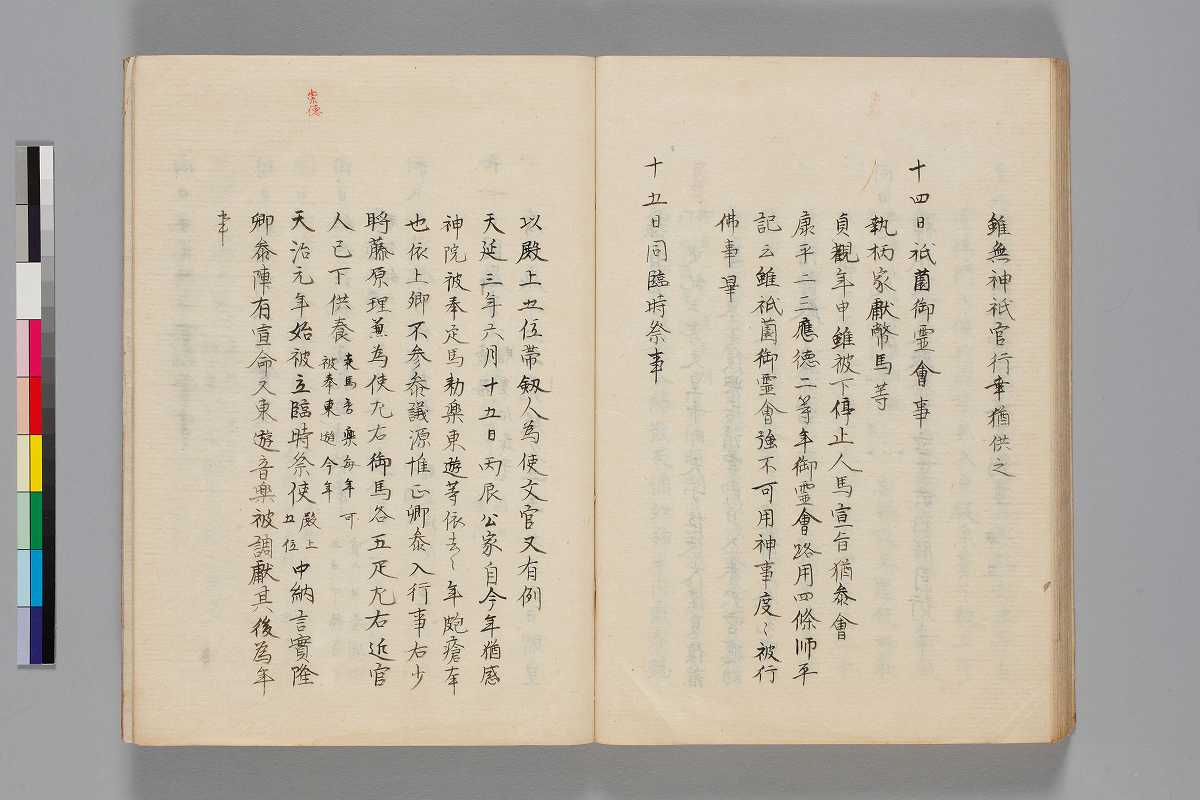 雖無神祇官行幸猶供之
十四日祇薗御霊會事
執柄家献幣馬等
貞觀年中雖被下停止人馬宣旨猶叅會
康平二三應徳二等年御霊會路用四條師平
記云雖祇薗御霊會強不可用神事度〻被行
佛事畢
十五日同臨時祭事
崇徳
以殿上五位帯釼人為使文官又有例
天延三年六月十五日丙辰公家自今年猶感
神院被奉走馬勅樂東遊等依去〻年皰瘡
也依上卿不参叅議源惟正卿叅入行事右少
将藤原理兼為使尤右御馬各五疋尤右近官
人已下供養走馬音樂每年可
被奉東遊今年
天治元年始被立臨時祭使殿上
五位中納言實隆
卿叅陣有宣命又東遊音樂被調獻其後為年
事